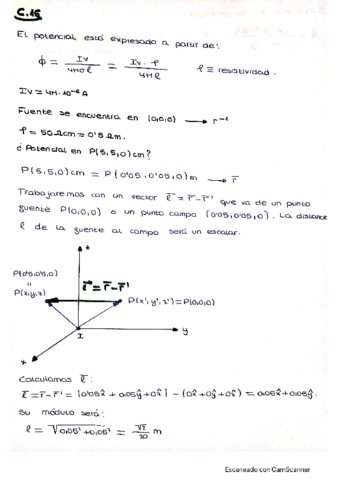 C.16
El potencial está expresado a partir de:
ϕ = Iv / 4πσl = Iv · ρ / 4πl    ρ ≡ resistividad.
Iv = 4π·10⁻⁶ A
Fuente se encuentra en (0,0,0) → r⁻¹
ρ = 50 Ωcm = 0'5 Ωm.
¿ Potencial en P(5,5,0) cm?
P(5,5,0) cm = P(0'05, 0'05, 0) m → r̄
Trabajaremos con un vector l̄ = r̄ - r̄' que va de un punto
fuente P(0,0,0) a un punto campo (0'05, 0'05, 0). La distancia
l de la fuente al campo será un escalar.
z
P(0'5,0'5,0)
=
P(x,y,z)
l̄ = r̄ - r̄'
P(x',y',z') = P(0,0,0)
I
y
x
Calculamos l̄:
l̄ = r̄ - r̄' = (0'05x̂ + 0.05ŷ + 0ẑ) - (0x̂ + 0ŷ + 0ẑ) = 0.05x̂ + 0.05ŷ.
Su módulo será:
l = √0.05² + 0.05² = √2 / 20 m
Escaneado con CamScanner